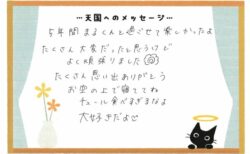 …天国へのメッセージ…
5年間まるくんと過ごせて楽しかったよ
たくさん大変だったと思うけど
よく頑張りました
たくさん思い出ありがとう
お空の上で寝ててね
チュール食べすぎるなよ
大好きだよ